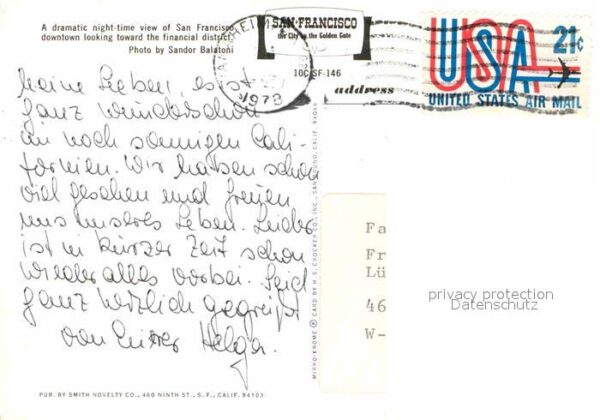 A dramatic night-time view of San Francisco
downtown looking toward the financial district.
Photo by Sandor Balatoni
SAN FRANCISCO
the City by the Golden Gate
10C SF-146
address
1978
USA 21c
UNITED STATES AIR MAIL
Meine Lieben, es ist
ganz wunderschön
im noch sonnigen Cali-
fornien. Wir haben schon
viel gesehen und freuen
uns unseres Leben. Leider
ist in kurzer Zeit schon
wieder alles vorbei. Seid
ganz herzlich gegrüßt
von Eurer Helga.
MIRRO-KROME ® CARD BY H. S. CROCKER CO., INC., SAN BRUNO, CALIF. 94066
Fa
Fr
Lü
46
W-
privacy protection
Datenschutz
PUB. BY SMITH NOVELTY CO., 460 NINTH ST., S.F., CALIF. 94103